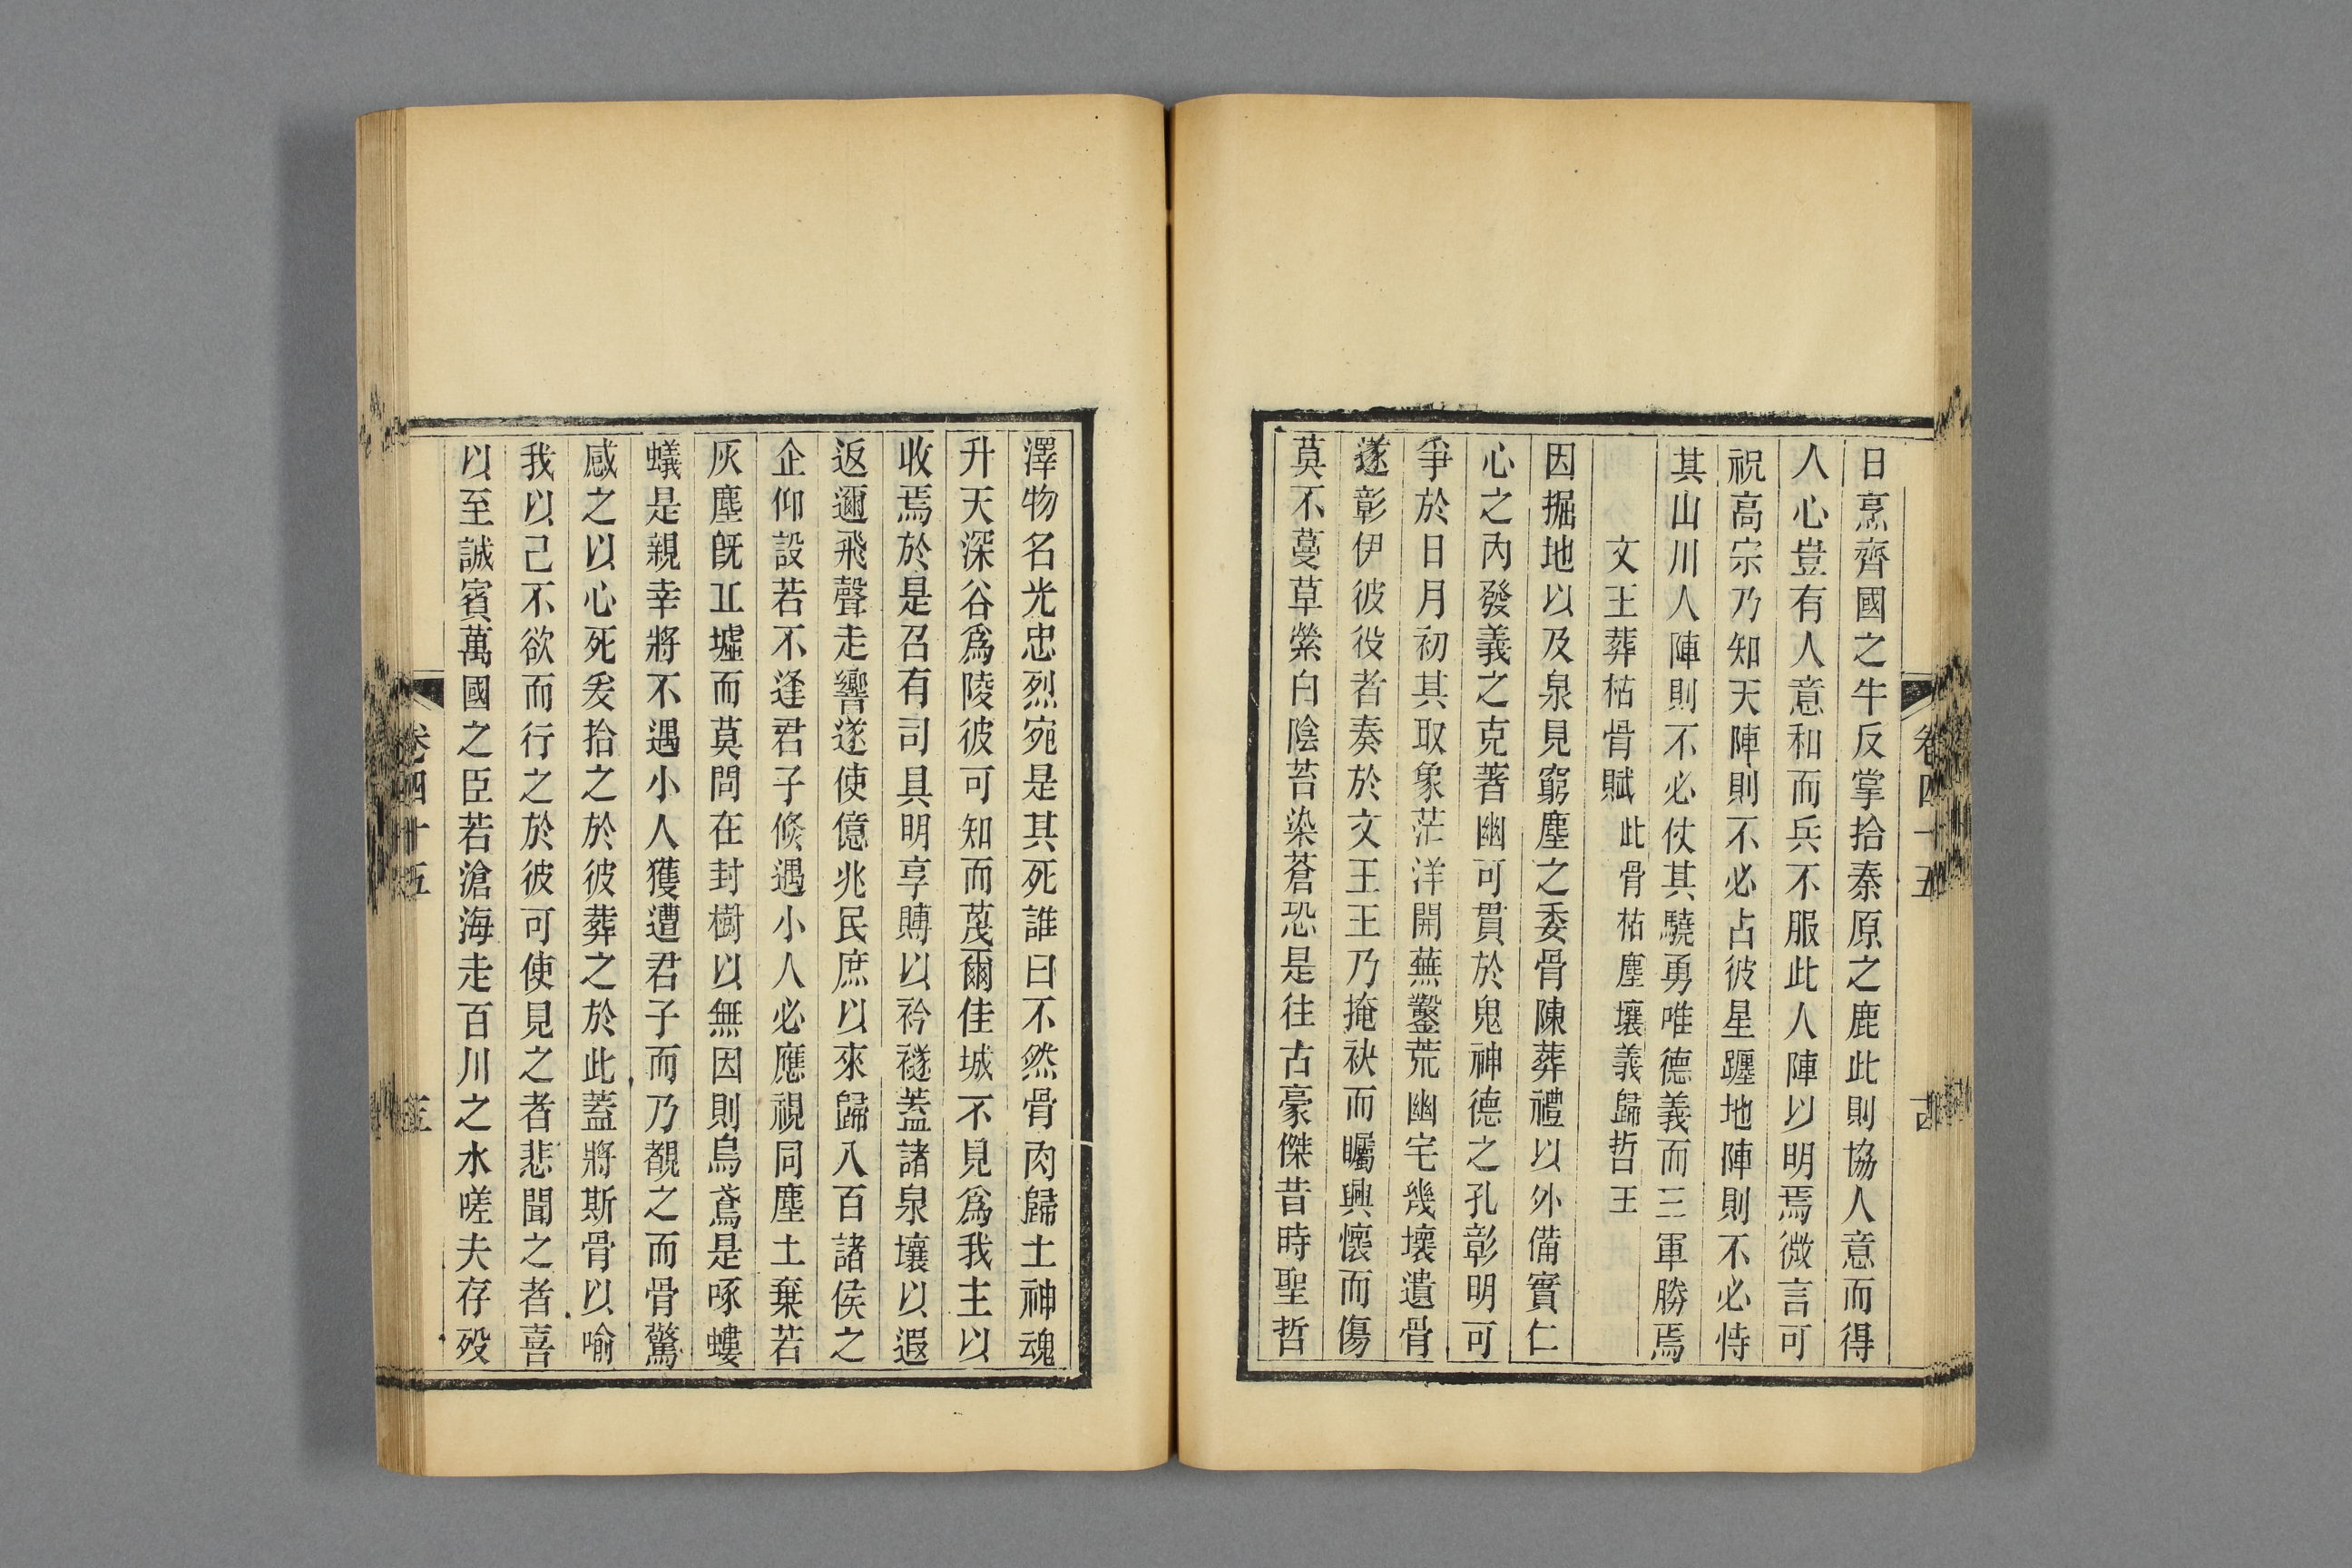 卷四十五
日烹齊國之牛反掌拾秦原之鹿此則協人意而得
人心豈有人意和而兵不服此人陣以明焉微言可
祝高宗乃知天陣則不必占彼星躔地陣則不必恃
其山川人陣則不必仗其驍勇唯德義而三軍勝焉
文王葬枯骨賦 此骨枯塵壤義歸哲王
因掘地以及泉見窮塵之委骨陳葬禮以外備實仁
心之內發義之克著幽可貫於鬼神德之孔彰明可
爭於日月初其取象茫洋開蕪鑿荒幽宅幾壞遺骨
遂彰伊彼役者奏於文王王乃掩袂而矚興懷而傷
莫不蔓草縈白陰苔染蒼恐是往古豪傑昔時聖哲
澤物名光忠烈宛是其死誰曰不然骨肉歸土神魂
升天深谷爲陵彼可知而茂爾佳城不見爲我主以
收焉於是召有司具明享賻以衿襚蓋諸泉壤以遐
返邇飛聲走響遂使億兆民庶以來歸八百諸侯之
企仰設若不逢君子倏遇小人必應視同塵土棄若
灰塵旣丠墟而莫問在封樹以無因則烏鳶是啄螻
蟻是親幸將不遇小人獲遭君子而乃覩之而骨驚
感之以心死爰拾之於彼葬之於此蓋將斯骨以喻
我以己不欲而行之於彼可使見之者悲聞之者喜
以至誠賓萬國之臣若滄海走百川之水嗟夫存歿
卷四十五